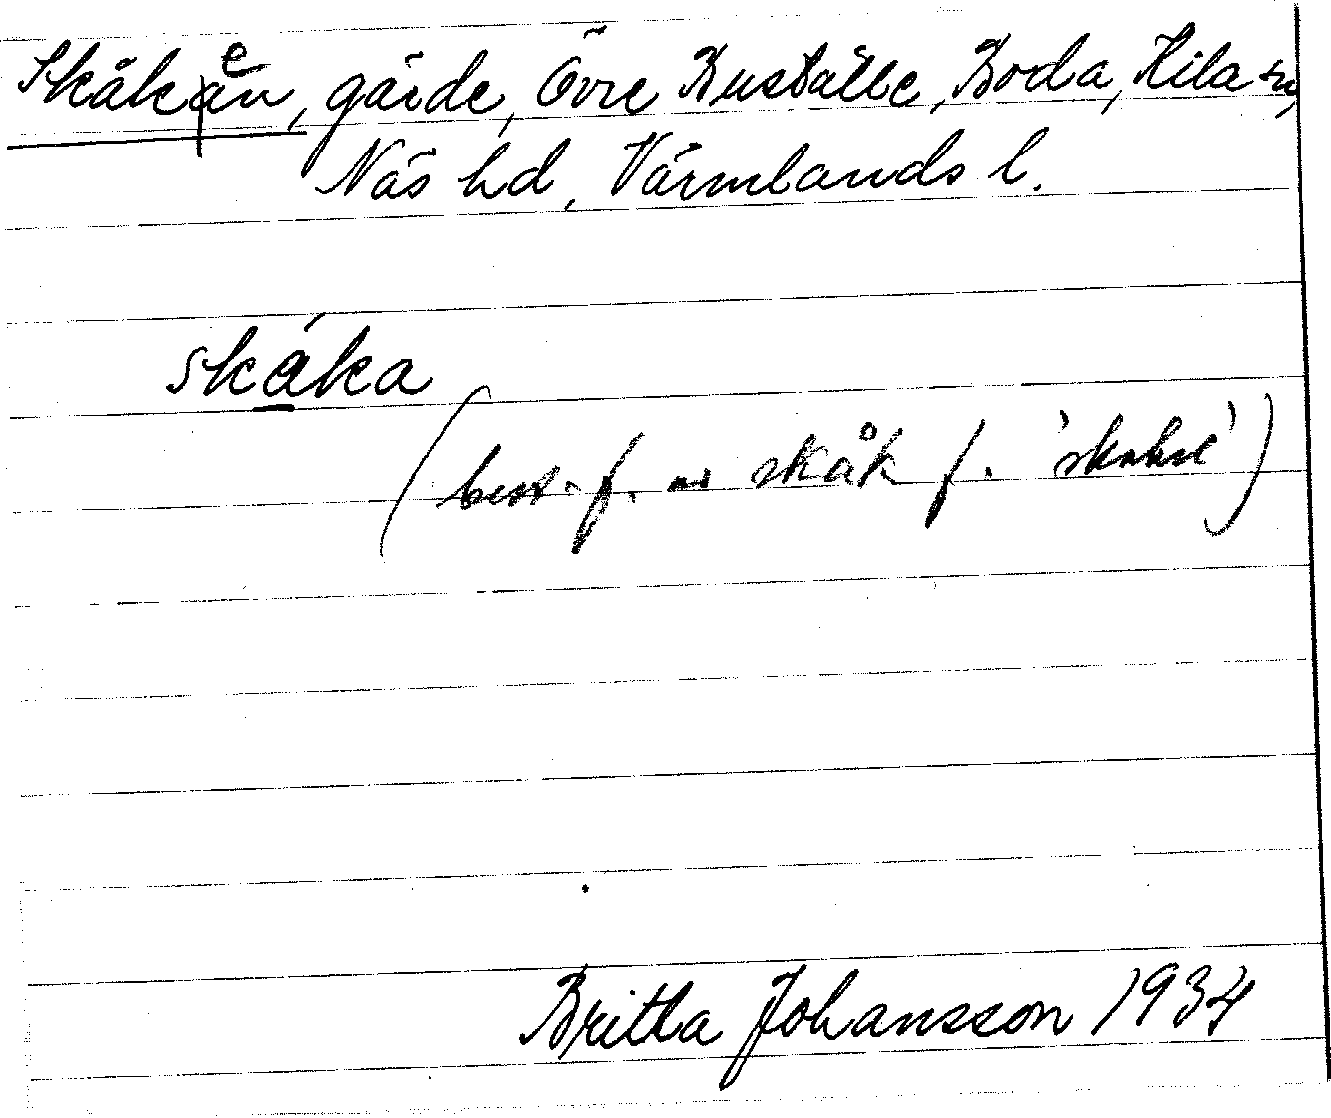 Skåken, gärde, Övre Buställe, Boda, Kila sn,
Näs hd, Värmlands l.
skáka
(best. f. av skåk f. 'skakel')
Britta Johansson 1934